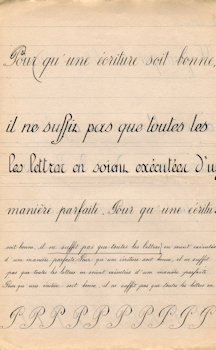 Pour qu'une écriture soit bonne,
il ne suffit pas que toutes les
les lettres en soient exécutées d'u
manière parfaite. Pour qu'une écritur
soit bonne, il ne suffit pas que toutes les lettres en soient exécutées
d'une manière parfaite. Pour qu'une écriture soit bonne, il ne suffit
pas que toutes les lettres en soient exécutées d'une manière parfaite.
Pour qu'une écriture soit bonne, il ne suffit pas que toutes les lettres en
P P P P P P P P P P